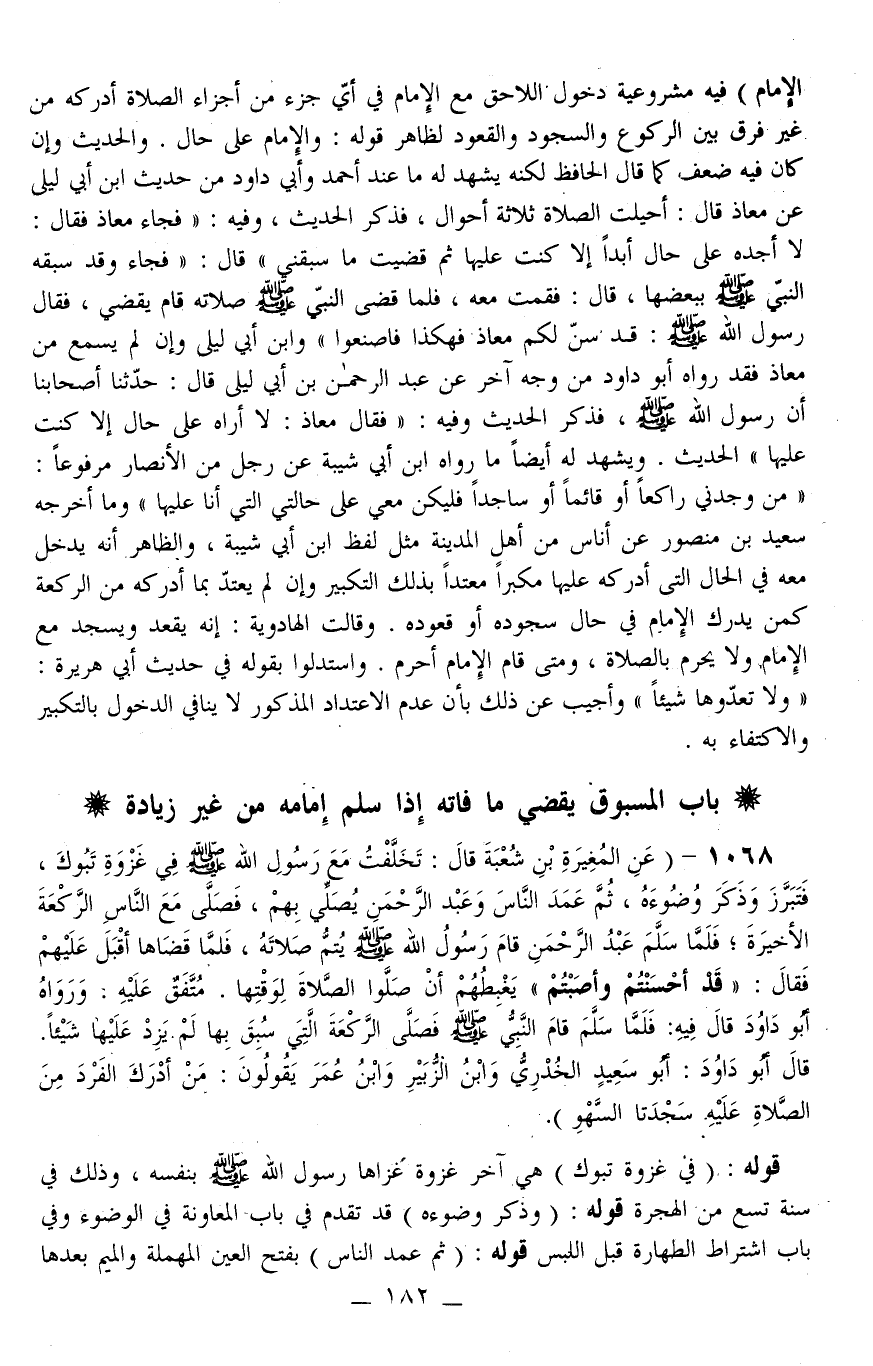 الإمام ) فيه مشروعية دخول اللاحق مع الإمام في أيّ جزء من أجزاء الصلاة أدركه من
غير فرق بين الركوع والسجود والقعود لظاهر قوله : والإمام على حال . والحديث وإن
كان فيه ضعف كما قال الحافظ لكنه يشهد له ما عند أحمد وأبي داود من حديث ابن أبي ليلى
عن معاذ قال : أحيلت الصلاة ثلاثة أحوال ، فذكر الحديث ، وفيه : « فجاء معاذ فقال :
لا أجده على حال أبداً إلا كنت عليها ثم قضيت ما سبقني » قال : « فجاء وقد سبقه
النبيّ ﷺ ببعضها ، قال : فقمت معه ، فلما قضى النبيّ ﷺ صلاته قام يقضي ، فقال
رسول الله ﷺ : قد سنّ لكم معاذ فهكذا فاصنعوا » وابن أبي ليلى وإن لم يسمع من
معاذ فقد رواه أبو داود من وجه آخر عن عبد الرحمٰن بن أبي ليلى قال : حدّثنا أصحابنا
أن رسول الله ﷺ ، فذكر الحديث وفيه : « فقال معاذ : لا أراه على حال إلا كنت
عليها » الحديث . ويشهد له أيضاً ما رواه ابن أبي شيبة عن رجل من الأنصار مرفوعاً :
« من وجدني راكعاً أو قائماً أو ساجداً فليكن معي على حالتي التي أنا عليها » وما أخرجه
سعيد بن منصور عن أناس من أهل المدينة مثل لفظ ابن أبي شيبة ، والظاهر أنه يدخل
معه في الحال التى أدركه عليها مكبراً معتداً بذلك التكبير وإن لم يعتدّ بما أدركه من الركعة
كمن يدرك الإمام في حال سجوده أو قعوده . وقالت الهادوية : إنه يقعد ويسجد مع
الإمام ولا يحرم بالصلاة ، ومتى قام الإمام أحرم . واستدلوا بقوله في حديث أبي هريرة :
« ولا تعدّوها شيئاً » وأجيب عن ذلك بأن عدم الاعتداد المذكور لا ينافي الدخول بالتكبير
والاكتفاء به .
❋ باب المسبوق يقضي ما فاته إذا سلم إمامه من غير زيادة ❋
١٠٦٨ – ( عَنِ المُغِيرَةِ بْنِ شُعْبَةَ قالَ : تَخَلَّفْتُ مَعَ رَسُولِ الله ﷺ فِي غَزْوَةِ تَبُوكَ ،
فَتَبَرَّزَ وَذَكَرَ وُضُوءَهُ ، ثُمَّ عَمَدَ النَّاسَ وَعَبْد الرَّحْمَنِ يُصَلِّي بِهِمْ ، فَصَلَّى مَعَ النَّاسِ الرَّكْعَةَ
الأخيرَةَ ؛ فَلَمَّا سَلَّمَ عَبْدُ الرَّحْمَنِ قامَ رَسُولُ الله ﷺ يُتمُّ صَلاتَهُ ، فَلمَّا قَضَاها أقْبَلَ عَلَيْهِمْ
فَقالَ : « قَدْ أحْسَنْتُمْ وأصَبْتُمْ » يَغْبِطُهُمْ أنْ صَلَّوا الصَّلاةَ لِوَقْتِها . مُتَّفَقٌ عَلَيْهِ . وَرَوَاهُ
أبُو دَاوُدَ قالَ فِيهِ: فَلَمَّا سَلَّمَ قامَ النَّبِيُّ ﷺ فَصَلَّى الرَّكْعَةَ الَّتِي سُبِقَ بِها لَمْ يَزِدْ عَلَيْها شَيْئاً.
قالَ أبُو دَاوُدَ : أبُو سَعِيدٍ الخُدْرِيُّ وَابْنُ الزُّبَيْرِ وَابْنُ عُمَرَ يَقُولُونَ : مَنْ أدْرَكَ الفَرْدَ مِنَ
الصَّلاةِ عَلَيْهِ سَجْدَتا السَّهْوِ ).
قوله : ( في غزوة تبوك ) هي آخر غزوة غزاها رسول الله ﷺ بنفسه ، وذلك في
سنة تسع من الهجرة قوله : ( وذكر وضوءه ) قد تقدم في باب المعاونة في الوضوء وفي
باب اشتراط الطهارة قبل اللبس قوله : ( ثم عمد الناس ) بفتح العين المهملة والميم بعدها
– ١٨٢ –